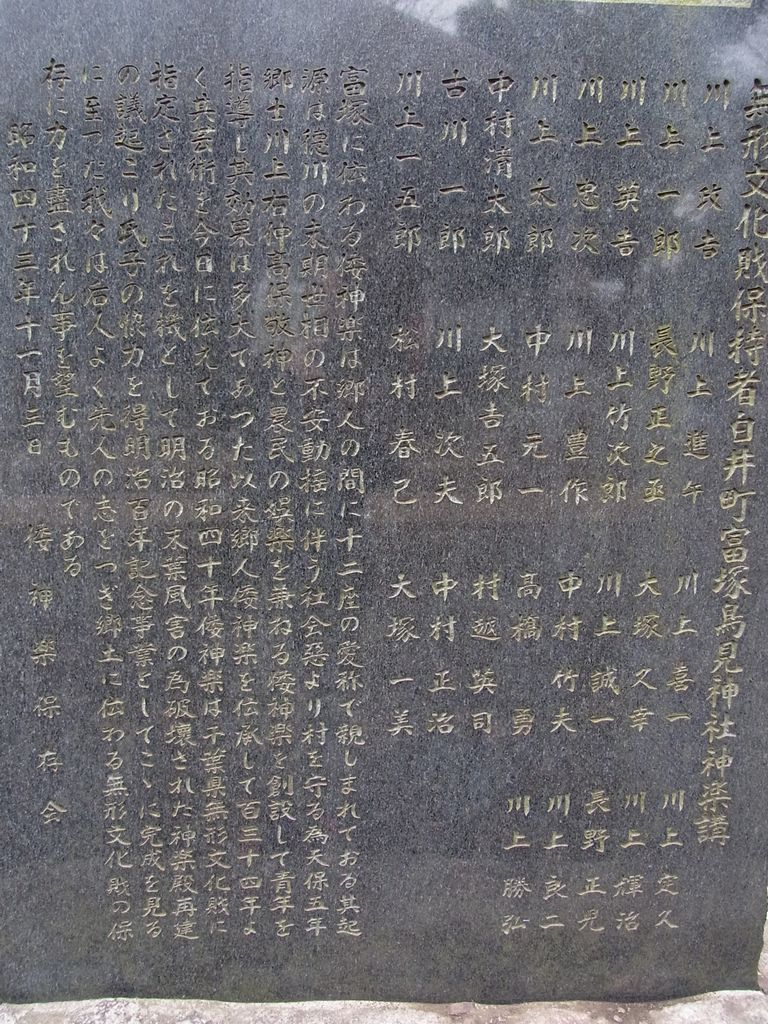 無形文化財保持者白井町富塚鳥見神社神楽講
川上政吉　川上進午　川上喜一　川上定久
川上一郎　長野正之亟　大塚久幸　川上輝治
川上英吉　川上竹次郎　川上誠一　長野正児
川上忠次　川上豊作　中村竹夫　川上良二
川上太郎　中村元一　高橋勇　川上勝弘
中村清太郎　大塚吉五郎　村越英司
古川一郎　川上次夫　中村正治
川上一五郎　松村春己　大塚一美
富塚に伝わる倭神楽は郷人の間に十二座の愛称で親しまれておる其起
源は徳川の末期世相の不安動揺に伴う社会悪より村を守る為天保五年
郷士川上右仲高保敬神と農民の娯楽を兼ねる倭神楽を創設して青年を
指導し其効果は多大であつた以来郷人倭神楽を伝承して百三十四年よ
く其芸術を今日に伝えておる昭和四十年倭神楽は千葉県無形文化財に
指定されたこれを機として明治の末葉風害の為破壊された神楽殿再建
の議起こり氏子の協力を得明治百年記念事業としてこゝに完成を見る
に至つた我々は后人よく先人の志をつぎ郷土に伝わる無形文化財の保
存に力を盡されん事を望むものである
昭和四十三年十一月三日　倭神楽保存会